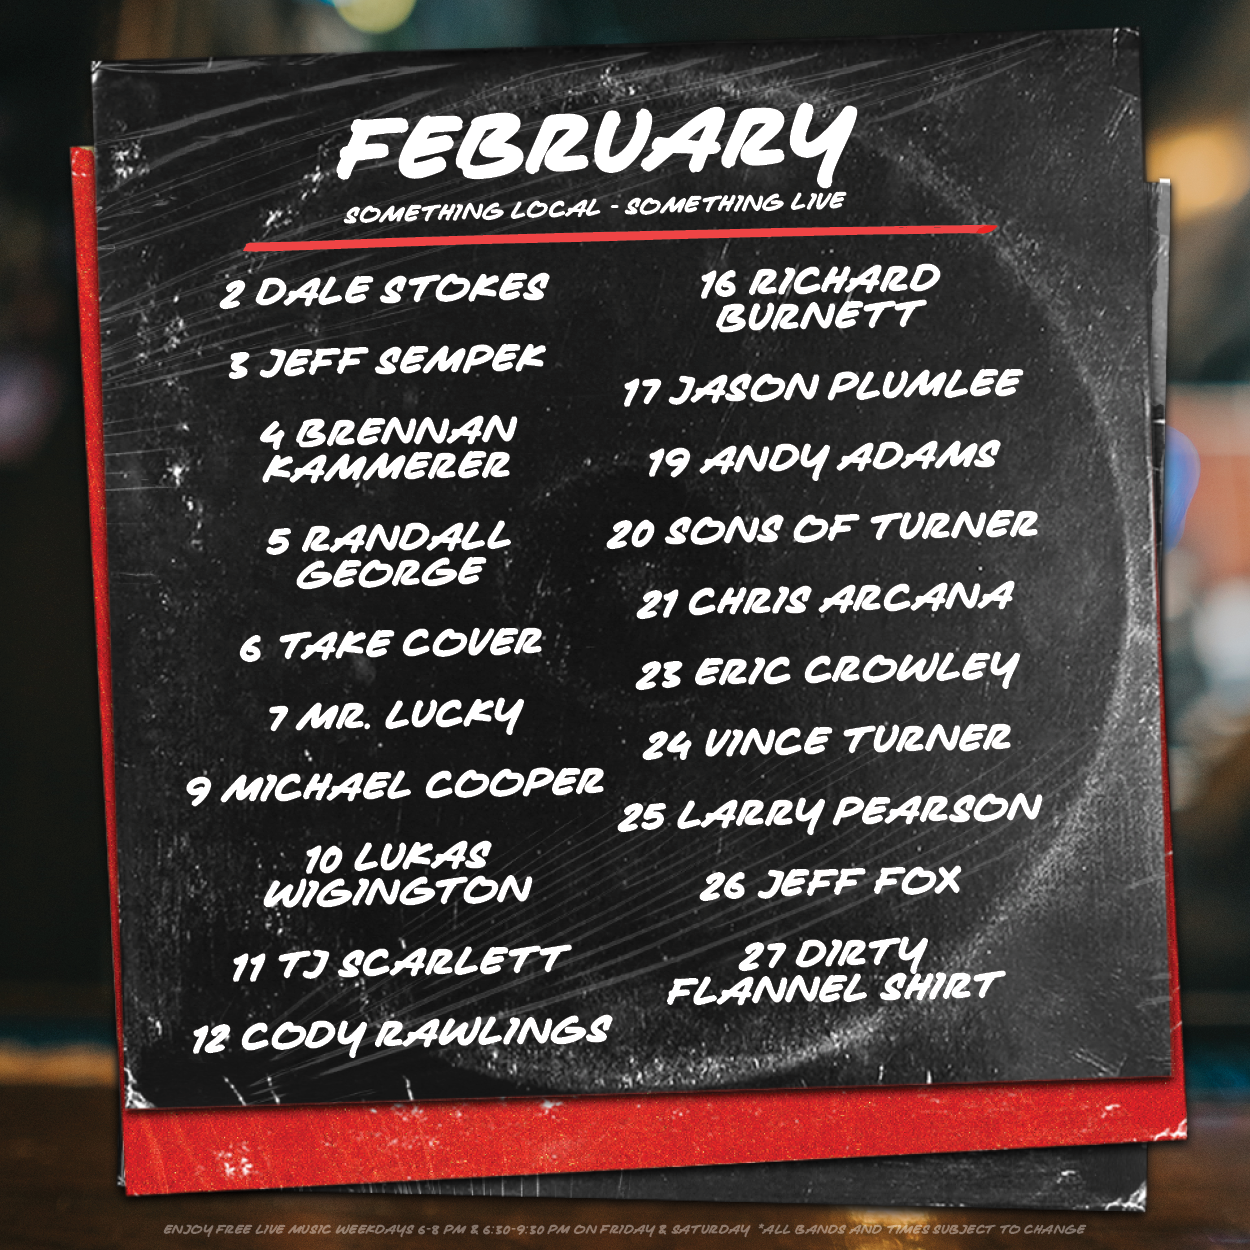 FEBRUARY
SOMETHING LOCAL - SOMETHING LIVE
2 DALE STOKES
3 JEFF SEMPEK
4 BRENNAN
KAMMERER
5 RANDALL
GEORGE
6 TAKE COVER
7 MR. LUCKY
9 MICHAEL COOPER
10 LUKAS
WIGINGTON
11 TJ SCARLETT
12 CODY RAWLINGS
16 RICHARD
BURNETT
17 JASON PLUMLEE
19 ANDY ADAMS
20 SONS OF TURNER
21 CHRIS ARCANA
23 ERIC CROWLEY
24 VINCE TURNER
25 LARRY PEARSON
26 JEFF FOX
27 DIRTY
FLANNEL SHIRT
ENJOY FREE LIVE MUSIC WEEKDAYS 6-8 PM & 6:30-9:30 PM ON FRIDAY & SATURDAY *ALL BANDS AND TIMES SUBJECT TO CHANGE